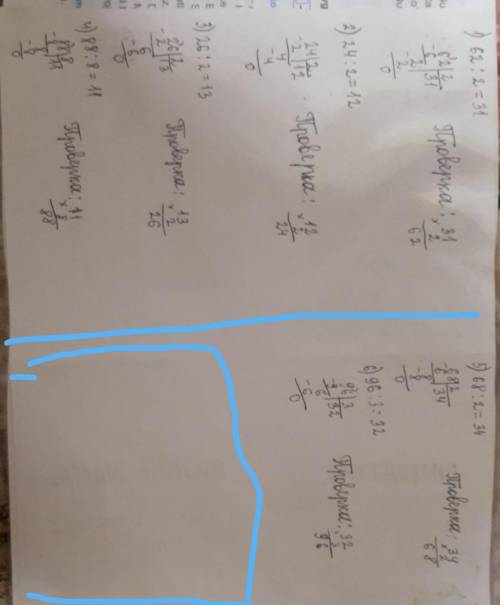 1) 62:2=31
-62|2
6|31
-2
2
0
Проверка: 31
×2
62
2) 24:2=12
-24|2
2|12
-4
4
0
Проверка: 12
×2
24
3) 26:2=13
-26|2
2|13
-6
6
0
Проверка: 13
×2
26
4) 88:8=11
-88|8
8|11
-8
8
0
Проверка: 11
×8
88
5) 68:2=34
-68|2
6|34
-8
8
0
Проверка: 34
×2
68
6) 96:3=32
-96|3
9|32
-6
6
0
Проверка: 32
×3
96